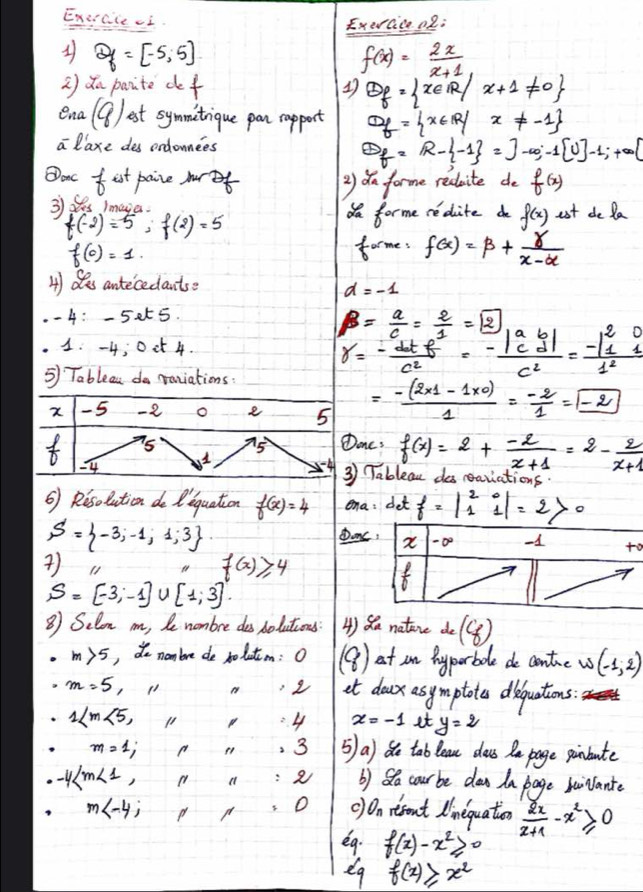 Exercice 01:
1) Df = [-5;5]
2) La parité de f
Ona (Cf) est symmétrique par rapport
à l'axe des ordonnées
Donc f est paire sur Df
3) Les Images:
f(-2) = 5 ; f(2) = 5
f(0) = 1.
4) Les antécédants:
. -4 : -5 et 5.
. 1 : -4; 0 et 4.
5) Tableau da variations:
x | -5 -2 0 2 5
f | -4 5 1 5 -4
6) Résolution de l'équation f(x) = 4
S = {-3; -1; 1; 3}.
7) " " f(x) ≥ 4
S = [-3; -1] U [1; 3].
8) Selon m, le nombre des solutions:
. m > 5, Le nombre de solution: 0
. m = 5, " " : 2
. 1 < m < 5, " " : 4
. m = 1; " " : 3
. -4 < m < 1, " " : 2
. m < -4; " " : 0
Exercice 02:
f(x) = 2x / x+1
1) Df = {x ∈ IR / x+1 ≠ 0}
Df = {x ∈ IR / x ≠ -1}
Df = IR - {-1} = ]-∞; -1[ U ]-1; +∞[
2) La forme réduite de f(x)
La forme réduite de f(x) est de la
forme: f(x) = β + γ / x-α
α = -1
β = a/c = 2/1 = 2
γ = - det f / c² = - |a b; c d| / c² = - |2 0; 1 1| / 1²
= -(2x1 - 1x0) / 1 = -2/1 = -2
Donc: f(x) = 2 + -2 / x+1 = 2 - 2 / x+1
3) Tableau des variations.
ona: det f = |2 0; 1 1| = 2 > 0
Donc:
x | -∞ -1 +∞
f
4) La nature de (Cf)
(Cf) est un hyperbole de centre ω(-1; 2)
et deux asymptotes d'équations:
x = -1 et y = 2
5) a) Le tableau dans la page suivante
b) La courbe dans la page suivante
c) On résout l'inéquation 2x / x+1 - x² ≥ 0
éq. f(x) - x² ≥ 0
éq f(x) ≥ x²